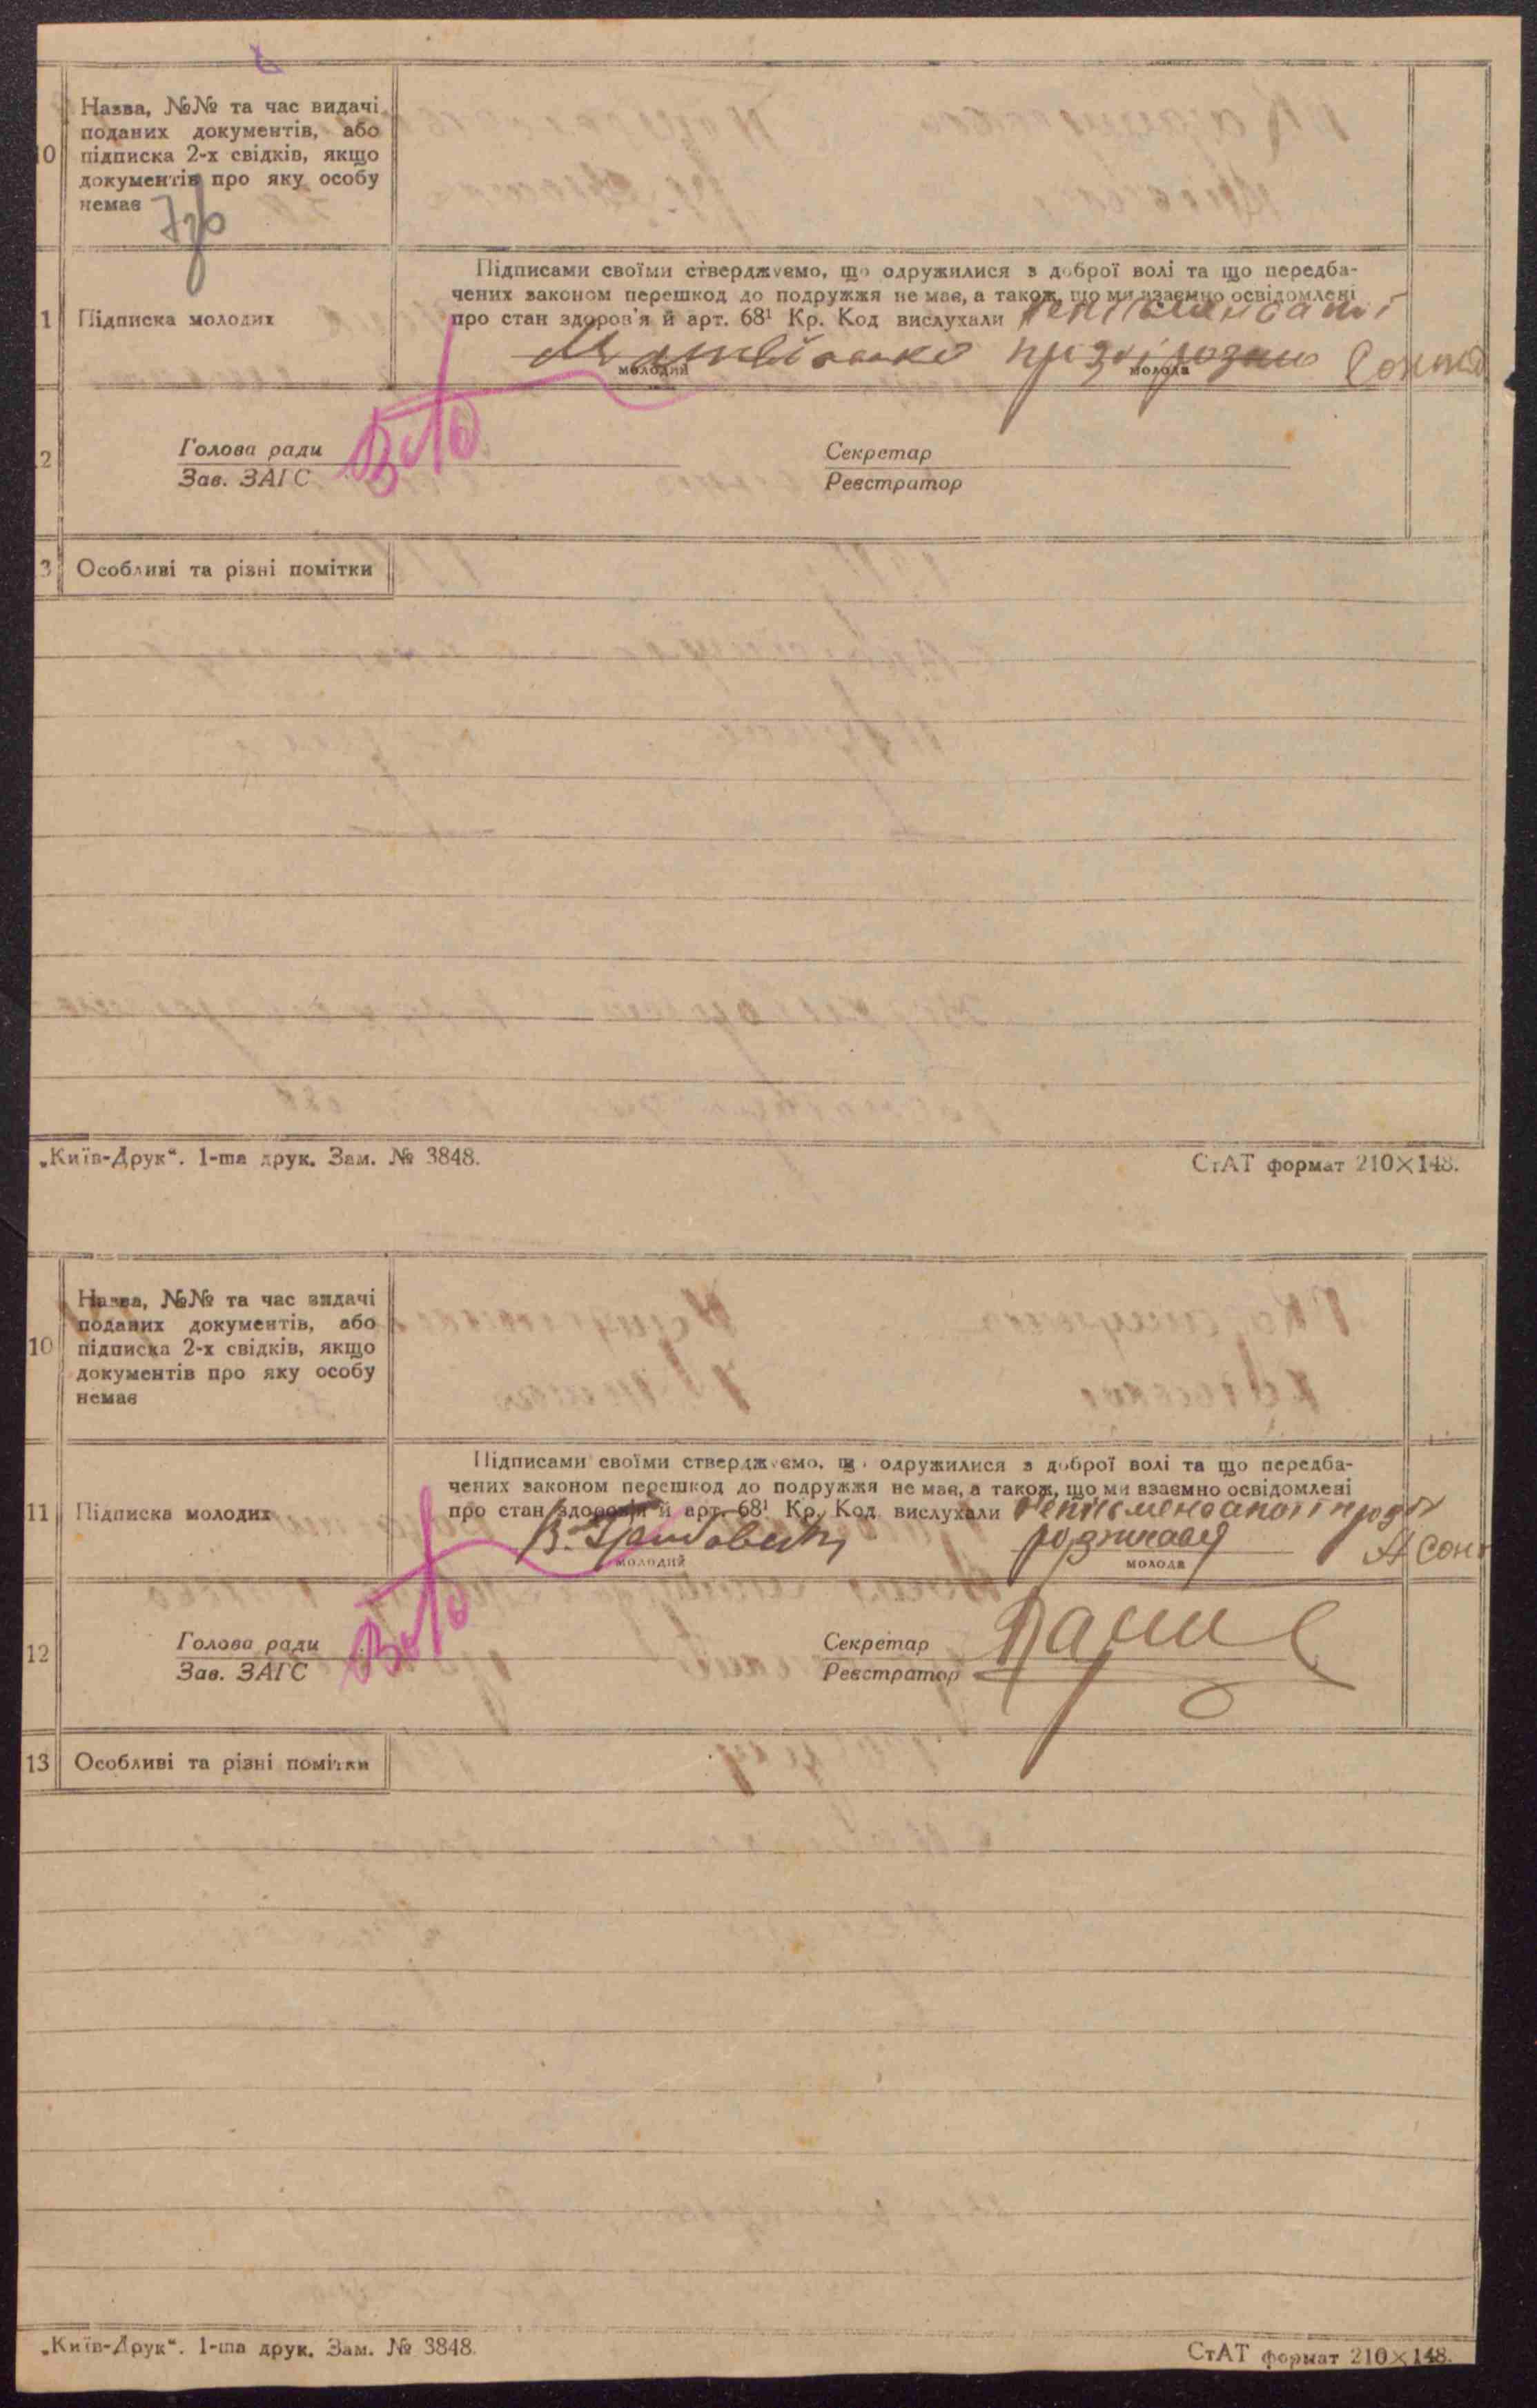 Назва, №№ та час видачі
поданих документів, або
10 підписка 2-х свідків, якщо
документів про яку особу
немає
Підписами своїми стверджуємо, що одружилися з доброї волі та що передба-
чених законом перешкод до подружжя не має, а також, що ми взаємно освідомлені
1 Підписка молодих
про стан здоров'я й арт. 68¹ Кр. Код вислухали
молодий молода
2
Голова ради
Зав. ЗАГС
Секретар
Реєстратор
3 Особливі та різні помітки
„Київ-Друк“. 1-ша друк. Зам. № 3848.
СтАТ формат 210×148.
Назва, №№ та час видачі
поданих документів, або
10 підписка 2-х свідків, якщо
документів про яку особу
немає
Підписами своїми стверджуємо, що одружилися з доброї волі та що передба-
чених законом перешкод до подружжя не має, а також, що ми взаємно освідомлені
11 Підписка молодих
про стан здоров'я й арт. 68¹ Кр. Код вислухали
молодий молода
12
Голова ради
Зав. ЗАГС
Секретар
Реєстратор
13 Особливі та різні помітки
„Київ-Друк“. 1-ша друк. Зам. № 3848.
СтАТ формат 210×148.